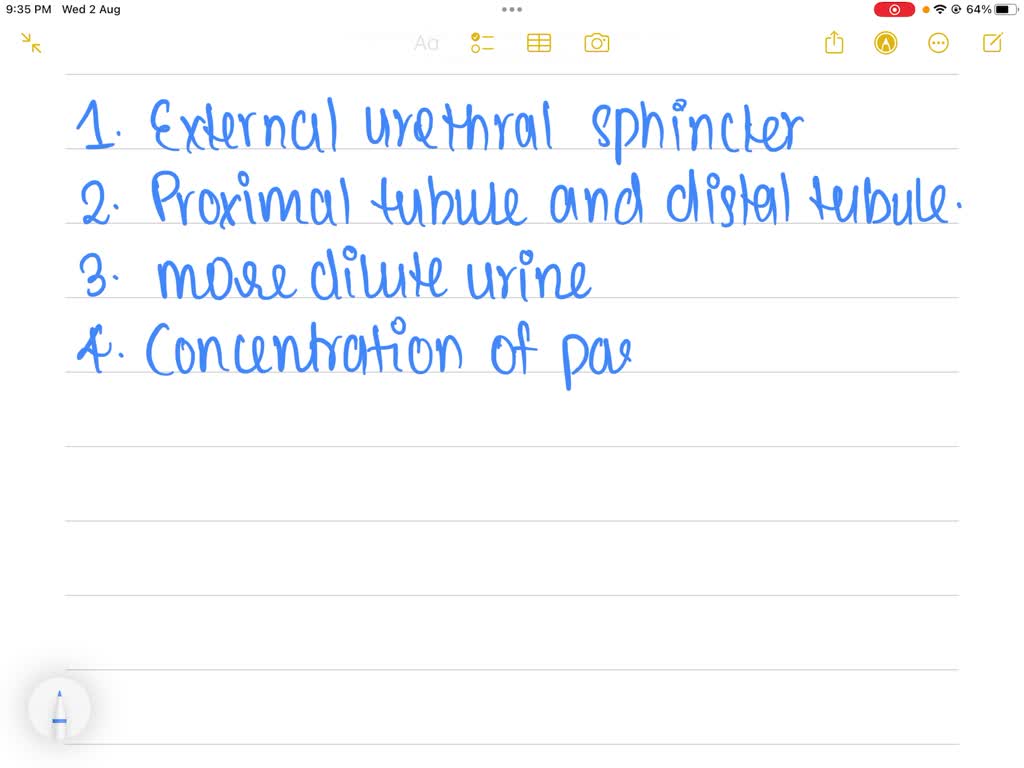 9:35 PM Wed 2 Aug
64%
Aa
1. External urethral sphincter
2. Proximal tubule and distal tubule.
3. more dilute urine
4. Concentration of par